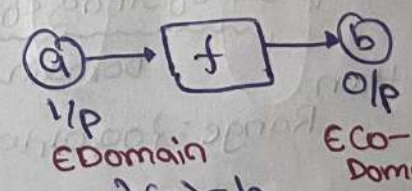 a f b
I/P O/P
∈Domain ∈Co-
Dom